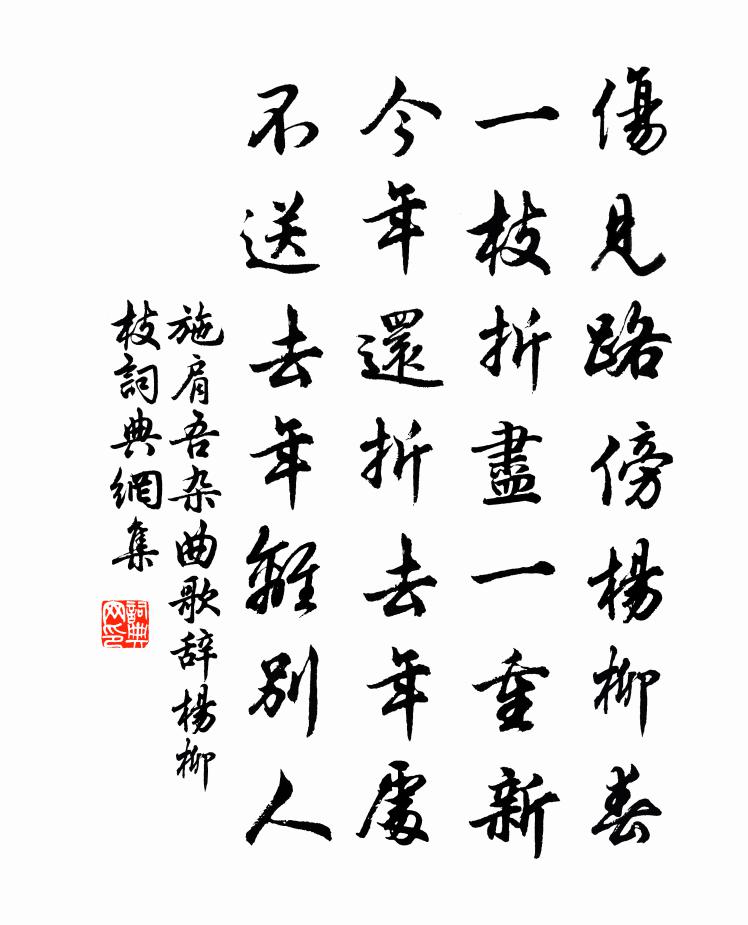 傷見路傍楊柳春
一枝折盡一重新
今年還折去年處
不送去年離別人
施肩吾杂曲歌辞楊柳
枝詞典網集
詞典网印